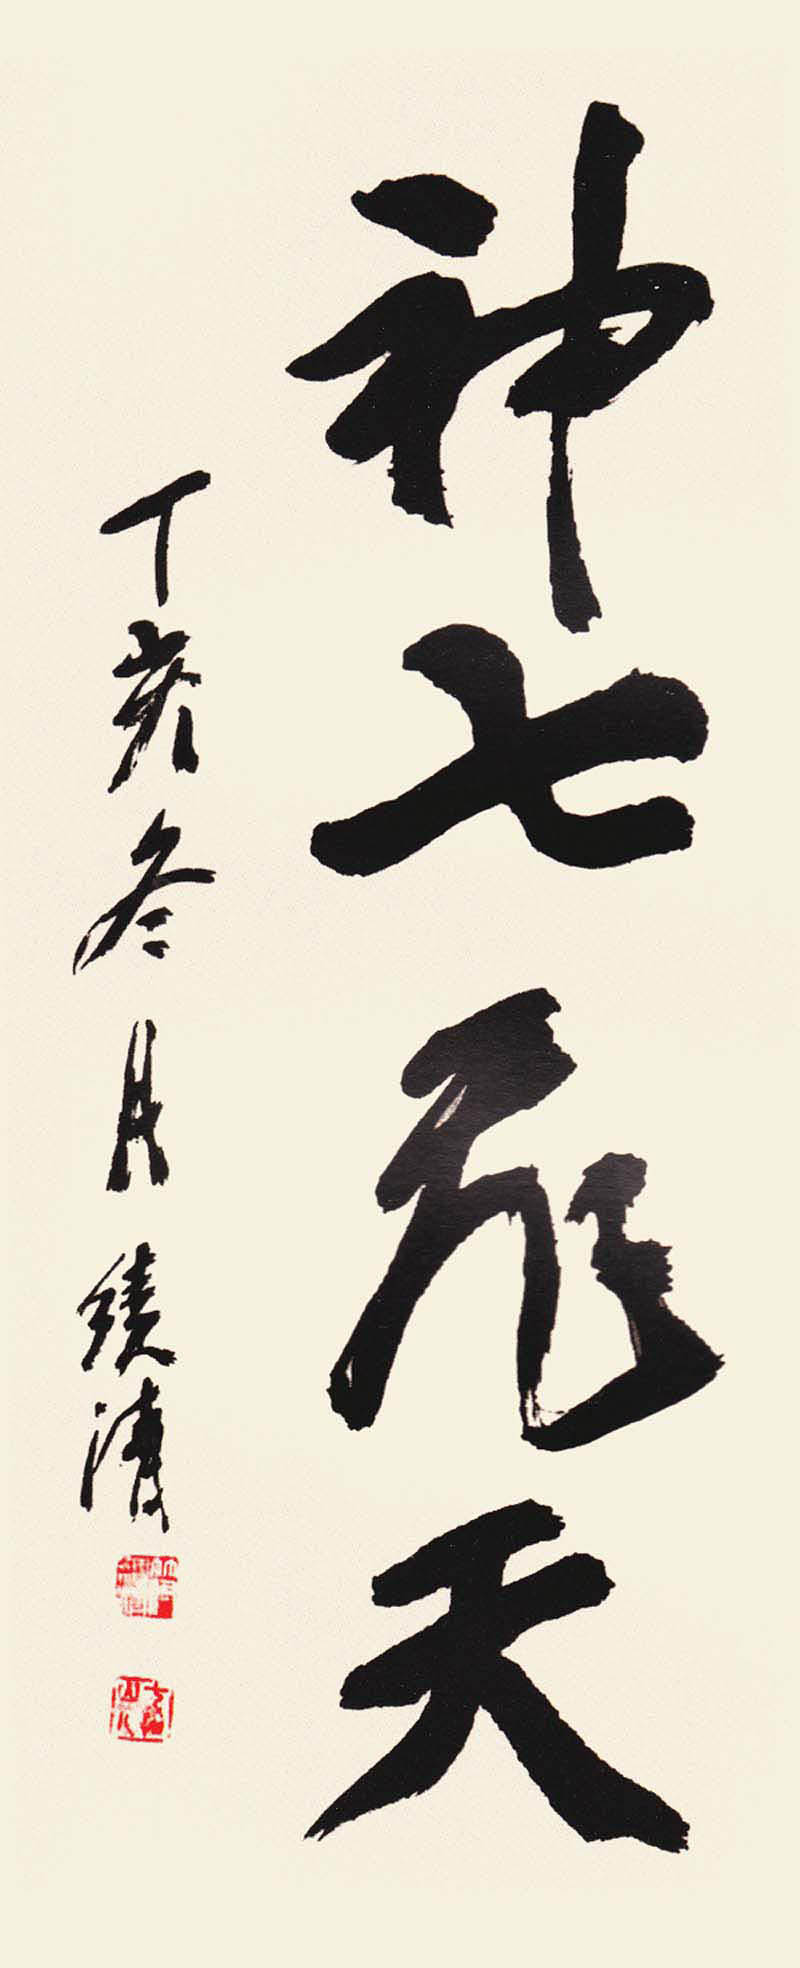 神七飛天
丁亥冬月績清